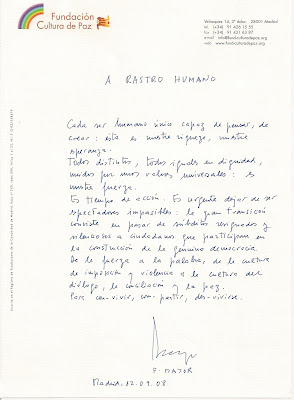 Fundación
Cultura de Paz
Velázquez 14, 3º dcha. 28001 Madrid
tel. (+34) 91 426 15 55
fax. (+34) 91 431 63 87
email info@fund-culturadepaz.org
web www.fund-culturadepaz.org
A RASTRO HUMANO
Cada ser humano único capaz de pensar, de
crear: ésta es nuestra riqueza, nuestra
esperanza.
Todos distintos, todos iguales en dignidad,
unidos por unos valores universales: es
nuestra fuerza.
Es tiempo de acción. Es urgente dejar de ser
espectadores impasibles: la gran transición
consiste en pasar de súbditos resignados y
silenciosos a ciudadanos que participan en
la construcción de la genuina democracia.
De la fuerza a la palabra, de la cultura
de imposición y violencia a la cultura del
diálogo, la conciliación y la paz.
Para con-vivir, com-partir, des-vivirse.
F. MAYOR
Madrid, 12.09.08